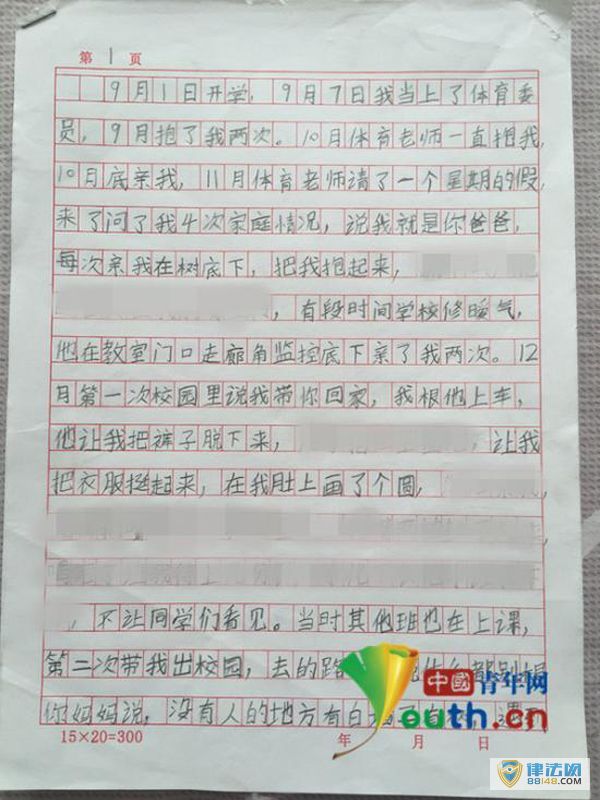 第 1 页
9月1日开学，9月7日我当上了体育委
员，9月抱了我两次。10月体育老师一直抱我，
10月底亲我，11月体育老师请了一个星期的假，
来了问了我4次家庭情况，说我就是你爸爸，
每次亲我在树底下，把我抱起来，
，有段时间学校修暖气，
他在教室门口走廊角监控底下亲了我两次。12
月第一次校园里说我带你回家，我根他上车，
他让我把裤子脱下来，，让我
把衣服挺起来，在我肚上画了个圆，
，不让同学们看见。当时其他班也在上课，
第二次带我出校园，去的路
你妈妈说，没有人的地方有白
15×20=300 年 月 日
中國青年网
Youth.cn
律法网
88148.com